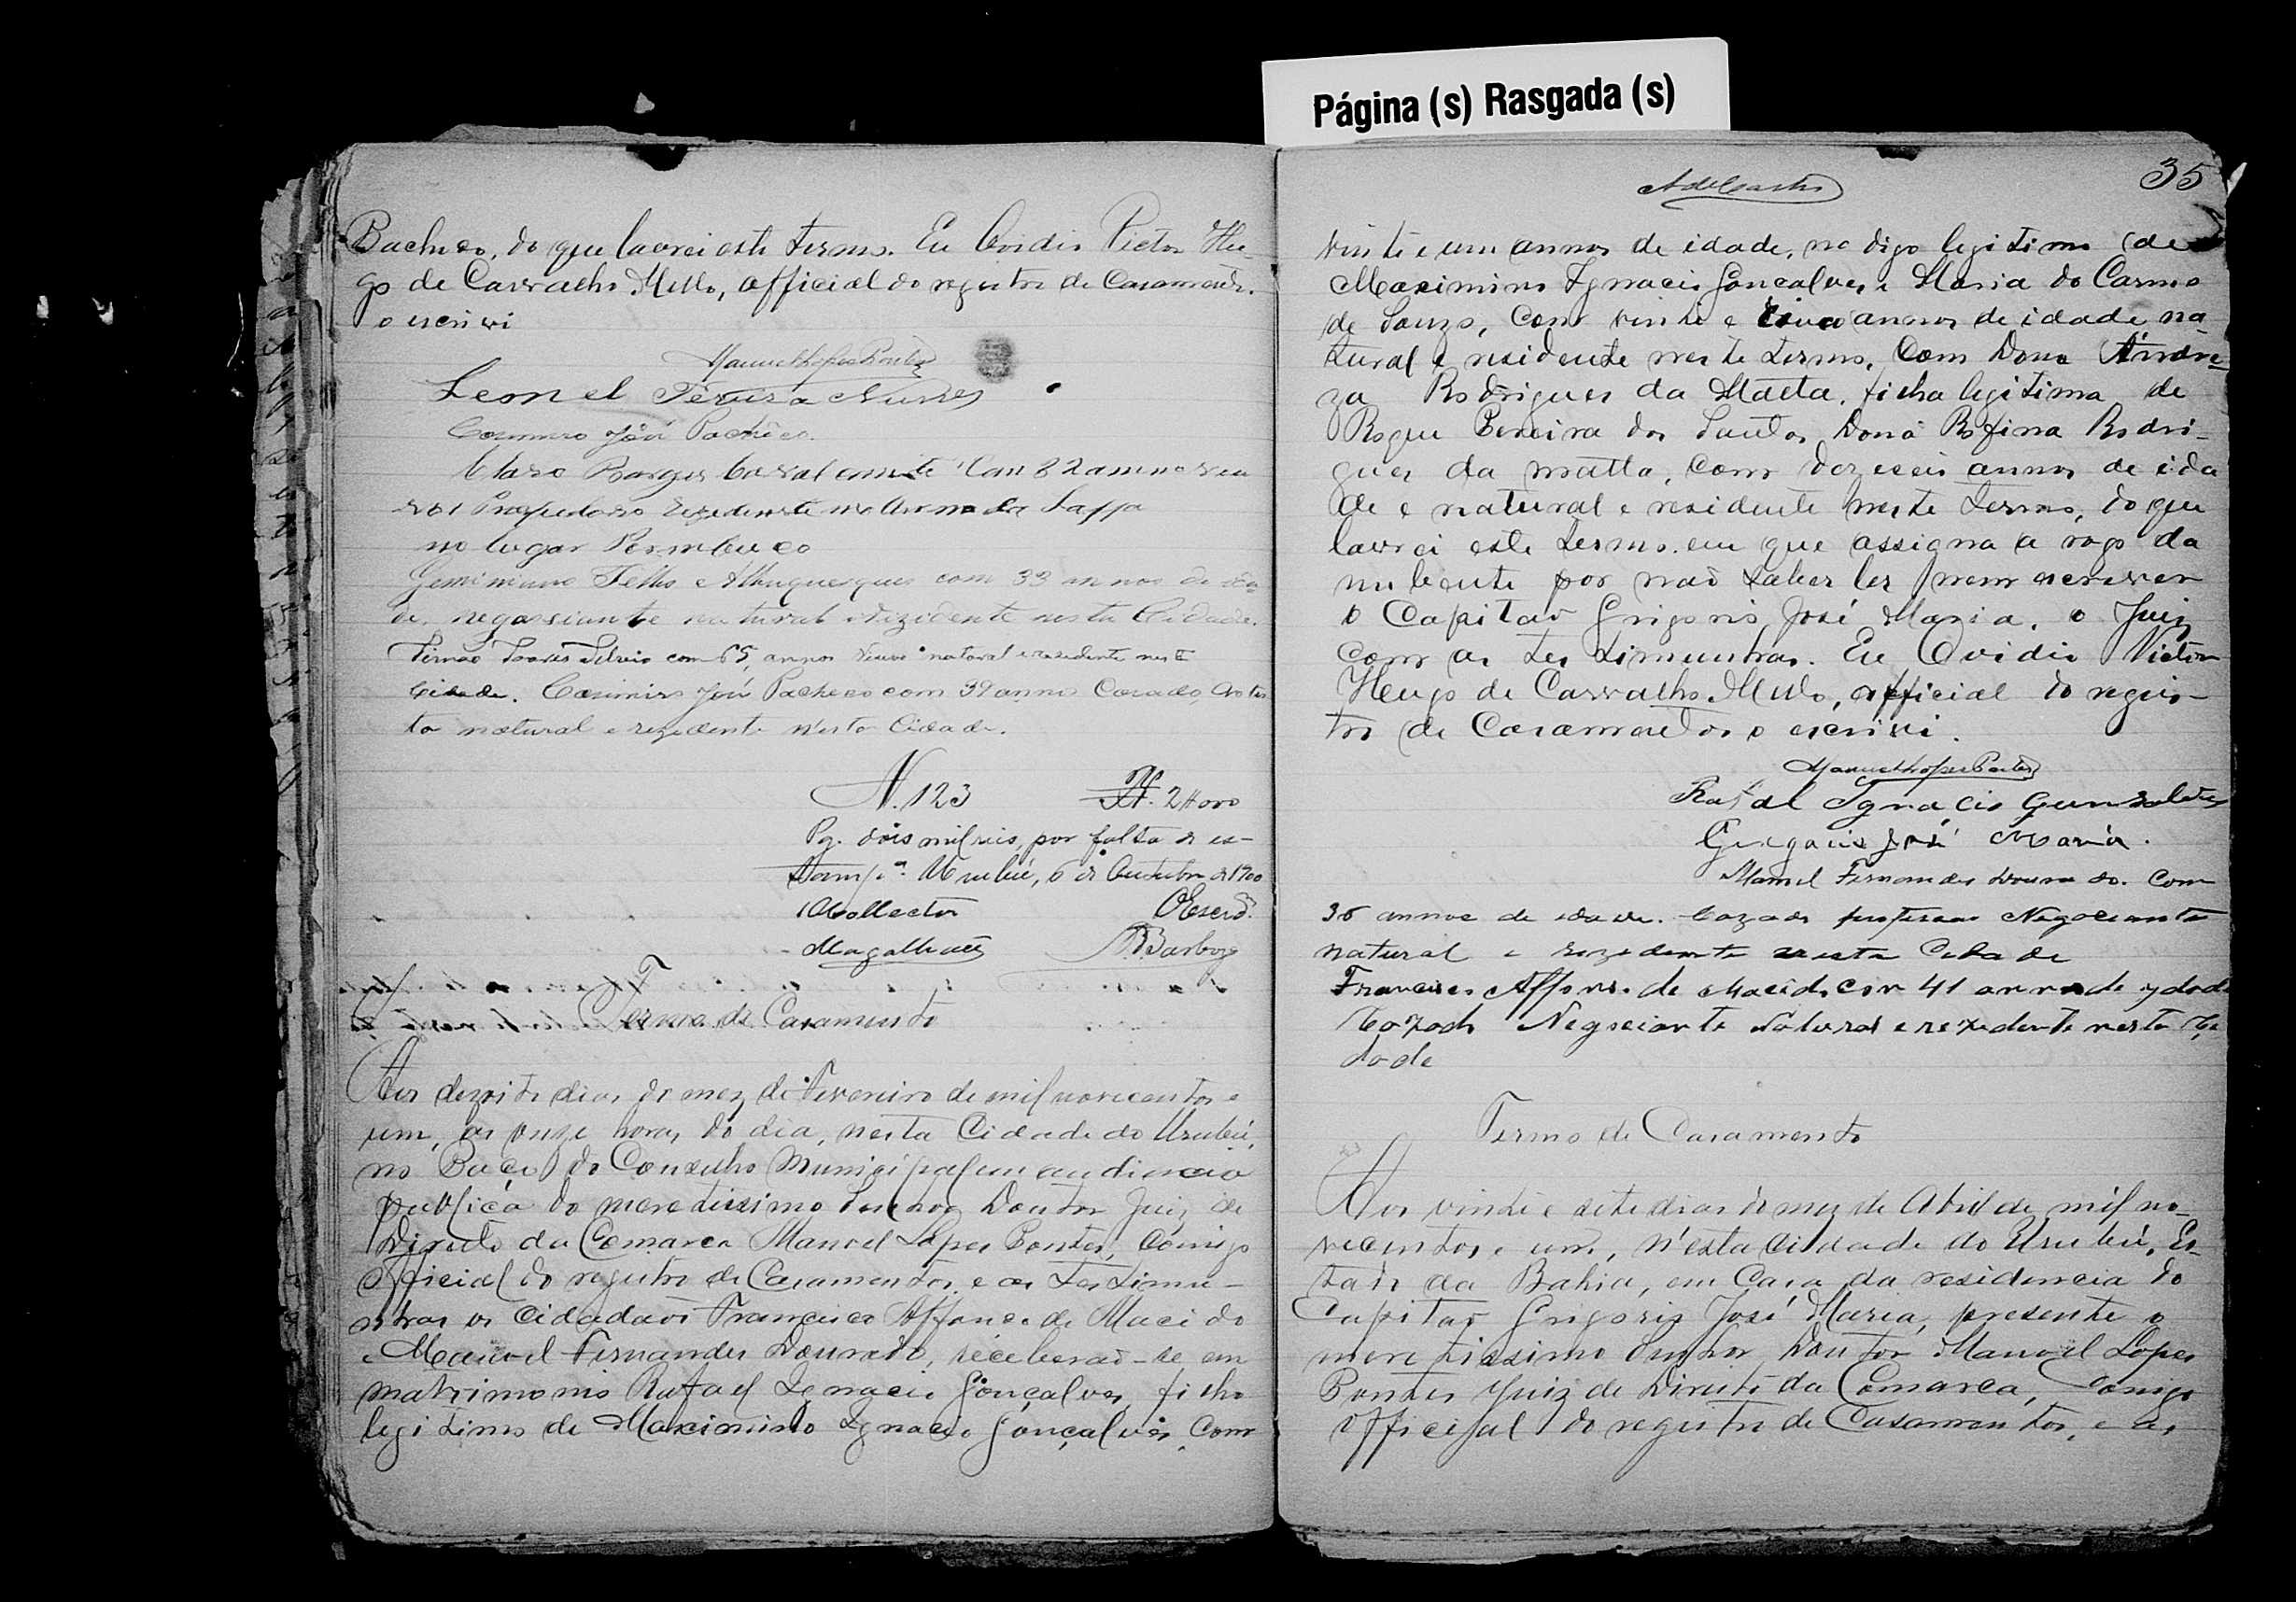 Pacheco, do que lavrei este termo. Eu Ovidio Victor Hu-
go de Carvalho Mello, official do registro de Casamento.
o escrivi
Manuel Lopes Pontes
Leonel Pereira Nunes
Casimiro José Pacheco.
Claro Borges com 32 annos
rezidente no
no lugar Pernambuco
Geminiano Telles e Albuquerque com 33 annos de ida
de, negossiante natural e rezidente nesta Cidade.
com 65 annos viuvo natural e rezidente nesta
Cidade. Casimiro José Pacheco com 39 annos Casado, Artis
ta natural e rezidente n'esta Cidade.
N. 123 2#000
Pg. dois mil reis, por falta de es-
tampª. Urubú, 6 de Outubro de 1900
O Collector O Escrm.
Magalhães Barboza
Termo de Casamento
Aos dezoito dias do mez de Fevereiro de mil novecentos e
um, as onze horas do dia, nesta Cidade do Urubú,
no Paço do Conselho Municipal em audiencia
publica do meretissimo Senhor Doutor Juiz de
Direito da Comarca Manoel Lopes Pontes, comigo
official do registro de Casamentos, e as testimu-
nhas os Cidadaõs Francisco Affonço de Macido
e Manoel Fernandes Dourado, receberaõ-se em
matrimonio Rafael Ignacio Gonçalves, filho
legitimo de Maximinio Ignacio Gonçalves, com
Página (s) Rasgada (s)
35
AdeCastro
vinte e um annos de idade, no digo legitimo de
Maximino Ignacio Gonçalves e Maria do Carmo
de Souza, com vinte e cinco annos de idade, na
tural e residente neste termo, com Dona Andre-
za Rodrigues da Matta, filha legitima de
Roque Pereira dos Santos Dona Rofina Rodri-
gues da matta, com dezeseis annos de ida
de e natural e residente neste termo, do que
lavrei este termo em que assigna a rogo da
nubente por naõ saber ler nem escrever
o Capitaõ Grigorio José Maria, o Juiz
com as testimunhas. Eu Ovidio Victor
Hugo de Carvalho Mello, official do regis-
tro de Casamentos o escrivi.
Manuel Lopes Pontes
Rafael Ignacio Gunsalves
Gregorio José Maria.
Manoel Fernandes Dourado. Com
36 annos de idade. Cazado profissão Negociante
natural e rezidente nesta Cidade
Francisco Affonso de Macido con 41 anno de ydade
Cazado Negociante Natural e rezidente nesta Ci
dade
Termo de Casamento
Aos vinte e sete dias do mez de Abril de mil no-
vecentos e um, n'esta cidade do Urubú, Es-
tado da Bahia, em Caza da residencia do
Capitaõ Grigorio José Maria, presente o
meretissimo Senhor Doutor Manoel Lopes
Pontes Juiz de Direito da Comarca, Comigo
official do registro de Casamentos, e as